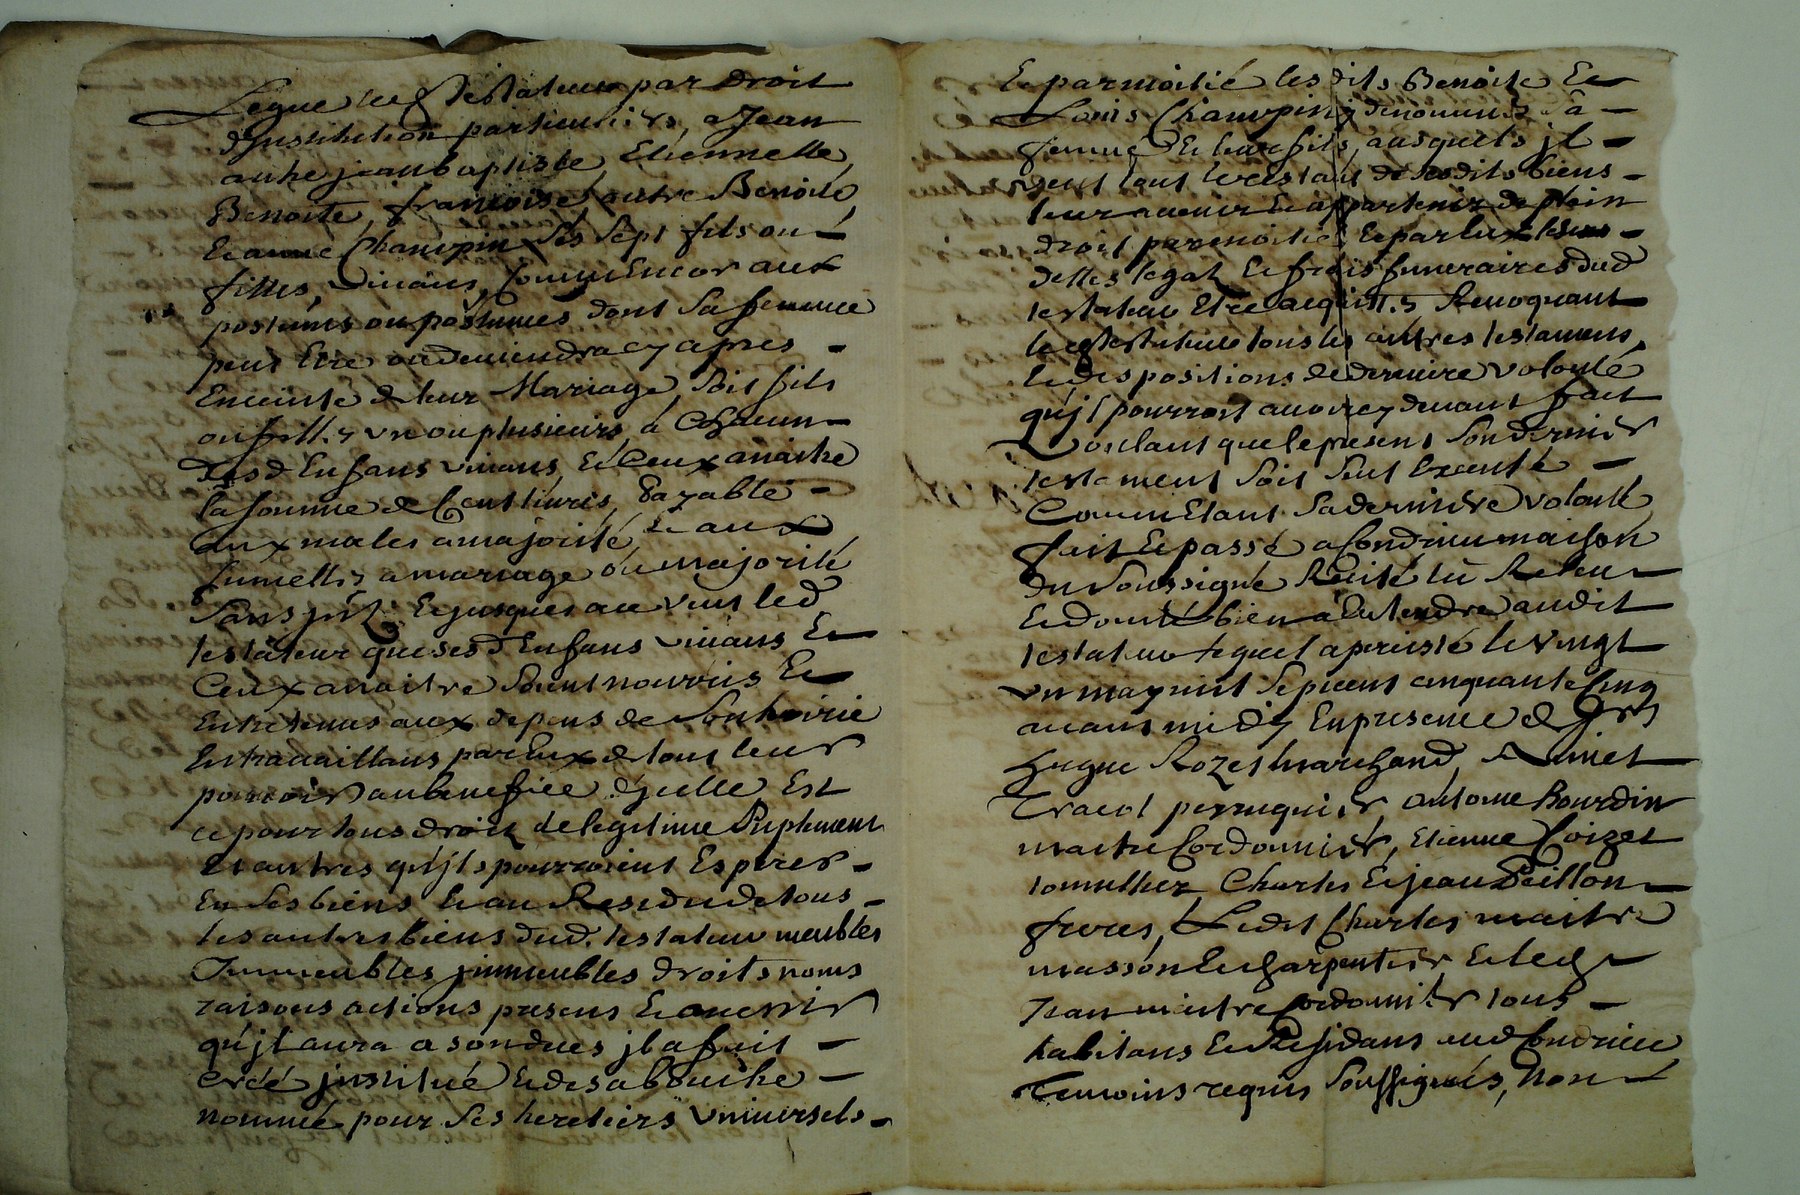 Legue led testateur par droit
d'institution particuliere, a Jean
autre jean baptiste, Etiennette,
Benoite, françoise, autre Benoite,
Et anne Champin ses sept fils ou
filles, vivans, comm'Encor aux
postumes ou postumes dont sa femme
peut Etre ou deviendra cy apres
Enceinte de leur Mariage, soit fils
ou filles un ou plusieurs, a Chacun
desd Enfans vivans, Et Ceux a naitre
la somme de Cent livres, Payable
aux males a majorité, Et aux
fumelles a mariage ou majorité
sans jnt. Et jusques a ce veut led
testateur que sesd Enfans vivans Et
Ceux a naitre soient nourris Et
Entretenus aux depens de son hoirie
En travaillans par Eux de tout leur
pouvoir au benefice d'jcelle Est
ce pour tous droitz de legitime suplement
Et autres qu'jls pourroient Esperer
En ses biens Et au Residu de tous
les autres biens dud. testateur meubles
Immeubles jmmeubles droits noms
raisons actions presens Et avenir
qu'jl aura a son deces jl a fait
créé jnstitué Et de sa bouche
nommé pour ses heretiers universels
Et par moitié lesdits Benoite Et
Louis Champin denommés sa
femme Et leur fils, ausquels jl
veut tout le restant de sesdits biens
leur avenir Et appartenir de plein
droit par moitié, Et par Eux ses
dettes legatz Et frais funeraires dud
testateur Etre acquittés Revoquant
led testateur tous les autres testamens
Et dispositions de derniere volonté
qu'jl pourroit avoir cy devant fait
Voulant que le present son dernier
testament soit seul Executé
Comm'Etant sa derniere volonté
fait Et passé a Condrieu maison
du soussigné Recité lû Releu
Et donné bien a Entendre audit
testateur lequel a persisté le vingt
un may mil sept cent cinquante Cinq
avant midy En presence de srs
hugue Rozet marchand, Aimet
Tracol perruquier, antoine Bourdin
maitre Cordonnier, Etienne Coizet
tonnellier, Charles Et jean Peillon
freres, Ledit Charles maitre
masson Et charpentier, Et led
Jean maitre Cordonnier tous
habitans Et Residans aud Condrieu
Temoins requis soussignés, Non